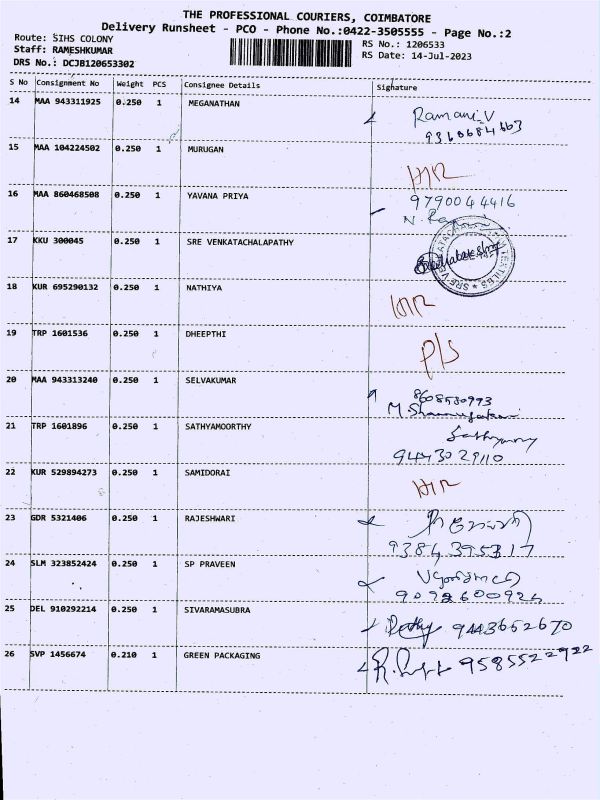 THE PROFESSIONAL COURIERS, COIMBATORE
Delivery Runsheet - PCO - Phone No.:0422-3505555 - Page No.:2
Route: SIHS COLONY
RS No.: 1206533
Staff: RAMESHKUMAR
RS Date: 14-Jul-2023
DRS No.: DCJB120653302
S No Consignment No Weight PCS Consignee Details Signature
14 MAA 943311925 0.250 1 MEGANATHAN Ramani.V
15 MAA 104224502 0.250 1 MURUGAN
16 MAA 860468508 0.250 1 YAVANA PRIYA 9790044416
17 KKU 300045 0.250 1 SRE VENKATACHALAPATHY
18 KUR 695290132 0.250 1 NATHIYA
19 TRP 1601536 0.250 1 DHEEPTHI P/S
20 MAA 943313240 0.250 1 SELVAKUMAR 8608530993
21 TRP 1601896 0.250 1 SATHYAMOORTHY
9443029110
22 KUR 529894273 0.250 1 SAMIDORAI
23 GDR 5321406 0.250 1 RAJESHWARI
9384395317
24 SLM 323852424 0.250 1 SP PRAVEEN
25 DEL 910292214 0.250 1 SIVARAMASUBRA 9443652670
26 SVP 1456674 0.210 1 GREEN PACKAGING 9585522922